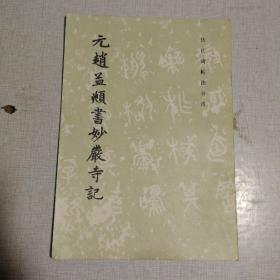 历代碑帖法书选
元趙孟頫書妙嚴寺記